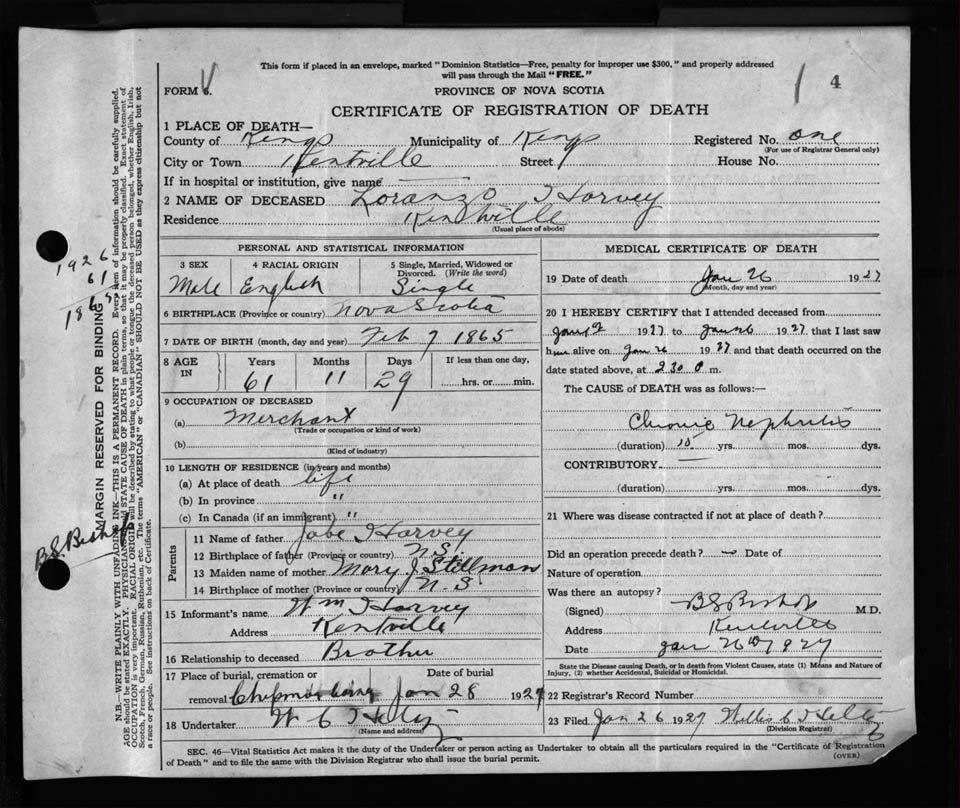 This form if placed in an envelope, marked "Dominion Statistics—Free, penalty for improper use $300," and properly addressed
will pass through the Mail "FREE."
FORM 6.
PROVINCE OF NOVA SCOTIA
4
CERTIFICATE OF REGISTRATION OF DEATH
1 PLACE OF DEATH—
County of Kings Municipality of Kings Registered No. one
(For use of Registrar General only)
City or Town Kentville Street House No.
If in hospital or institution, give name
2 NAME OF DECEASED Loranzo Harvey
Residence Kentville
(Usual place of abode)
PERSONAL AND STATISTICAL INFORMATION
3 SEX 4 RACIAL ORIGIN 5 Single, Married, Widowed or
Divorced. (Write the word)
Male English Single
6 BIRTHPLACE (Province or country) Nova Scotia
7 DATE OF BIRTH (month, day and year) Feb 7 1865
8 AGE IN Years Months Days If less than one day,
61 11 29 hrs. or min.
9 OCCUPATION OF DECEASED
(a) Merchant
(Trade or occupation or kind of work)
(b)
(Kind of industry)
10 LENGTH OF RESIDENCE (in years and months)
(a) At place of death life
(b) In province "
(c) In Canada (if an immigrant) "
Parents
11 Name of father Jabe Harvey
12 Birthplace of father (Province or country) N.S.
13 Maiden name of mother Mary J. Stillman
14 Birthplace of mother (Province or country) N.S.
15 Informant's name Wm Harvey
Address Kentville
16 Relationship to deceased Brother
17 Place of burial, cremation or Date of burial
removal Jan 28 1927
18 Undertaker W C
(Name and address)
MEDICAL CERTIFICATE OF DEATH
19 Date of death Jan 26 1927
(Month, day and year)
20 I HEREBY CERTIFY that I attended deceased from
1927 to Jan 26 1927 that I last saw
him alive on Jan 26 1927 and that death occurred on the
date stated above, at 2 30 P m.
The CAUSE of DEATH was as follows:—
Chronic Nephritis
(duration) 10 yrs. mos. dys.
CONTRIBUTORY
(duration) yrs. mos. dys.
21 Where was disease contracted if not at place of death?
Did an operation precede death? Date of
Nature of operation
Was there an autopsy?
(Signed) B S Bishop M.D.
Address Kentville
Date Jan 26 1927
State the Disease causing Death, or in death from Violent Causes, state (1) Means and Nature of
Injury, (2) whether Accidental, Suicidal or Homicidal.
22 Registrar's Record Number
23 Filed Jan 26 1927
(Division Registrar)
SEC. 46—Vital Statistics Act makes it the duty of the Undertaker or person acting as Undertaker to obtain all the particulars required in the "Certificate of Registration
of Death" and to file the same with the Division Registrar who shall issue the burial permit.
(OVER)
1926
61
1865
B.S. Bishop
MARGIN RESERVED FOR BINDING
N.B.—WRITE PLAINLY WITH UNFADING INK—THIS IS A PERMANENT RECORD. Every item of information should be carefully supplied.
AGE should be stated EXACTLY. PHYSICIANS should STATE CAUSE OF DEATH in plain terms, so that it may be properly classified. Exact statement of
OCCUPATION is very important. RACIAL ORIGIN will be described by stating to what people or tongue the deceased person belonged, whether English, Irish,
Scotch, French, German, Russian, Ruthenian, etc. The terms "AMERICAN" or "CANADIAN" SHOULD NOT BE USED as they express citizenship but not
a race or people. See instructions on back of Certificate.